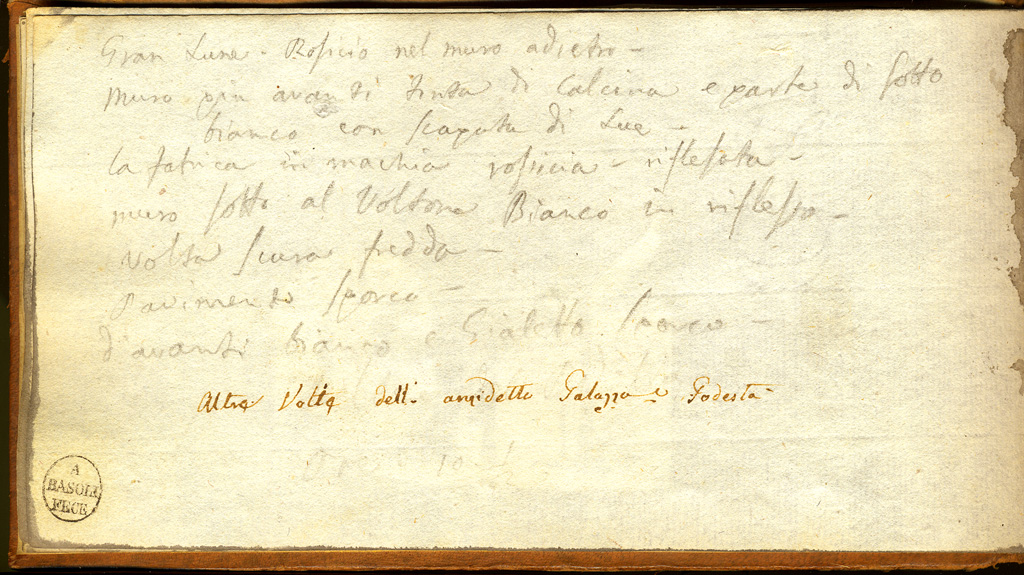 Gran Lume - Rosicio nel muro adietro -
muro piu avanti Tinta di Calcina e parte di sotto
bianco con scapata di Luce -
la fabrica in machia rossicia - riflesata -
muro sotto al Voltone Bianco in riflesso -
Volta scura fredda -
Pavimento sporco -
d'avanti bianco e Gialetto sporco -
Altre Volte dell. anzidetto Palazzo Podestà
A
BASOLI
FECE